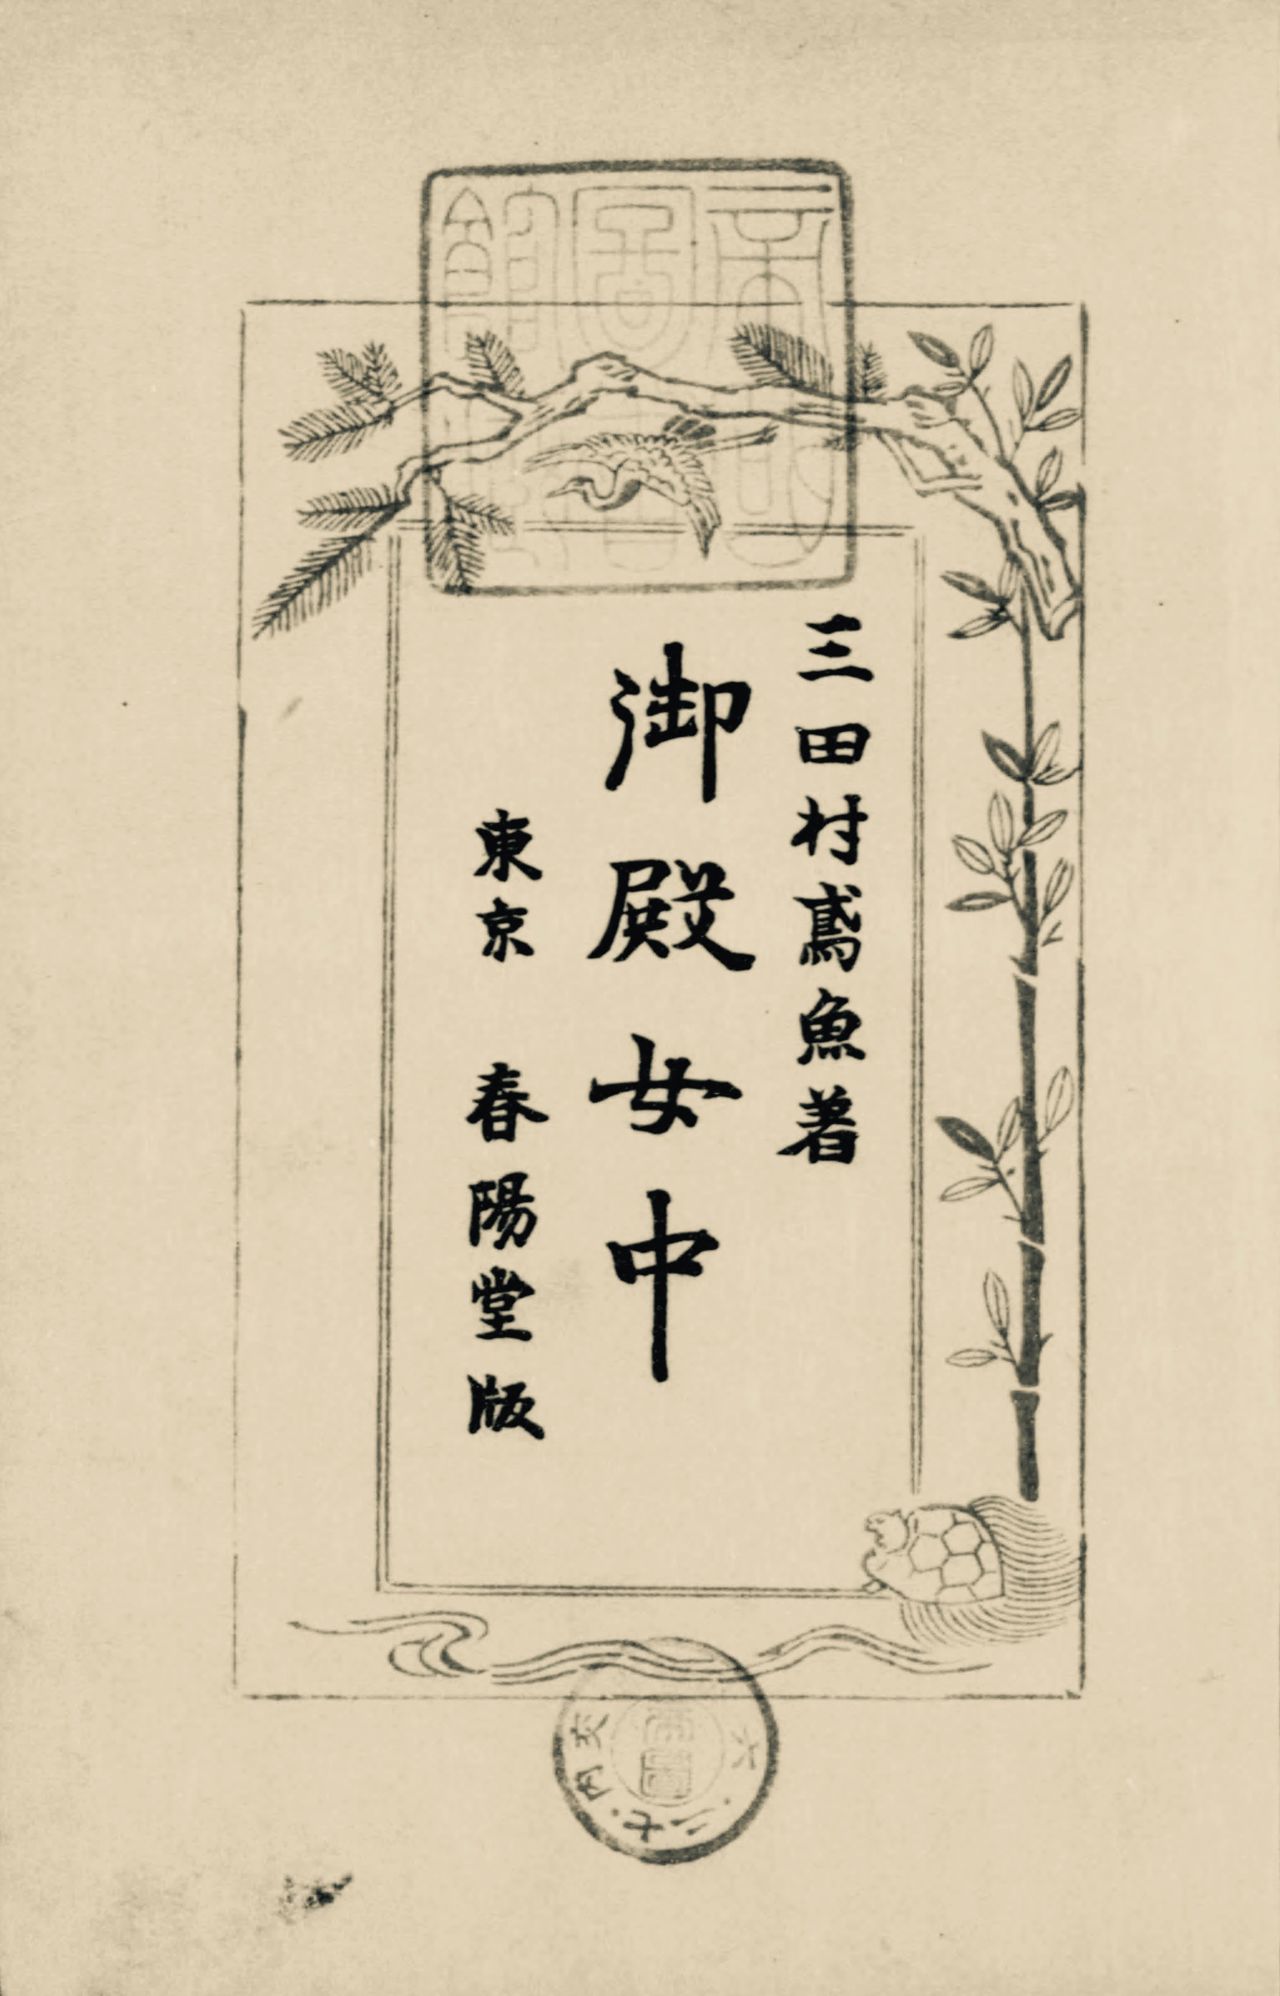 三田村鳶魚著
御殿女中
東京 春陽堂版